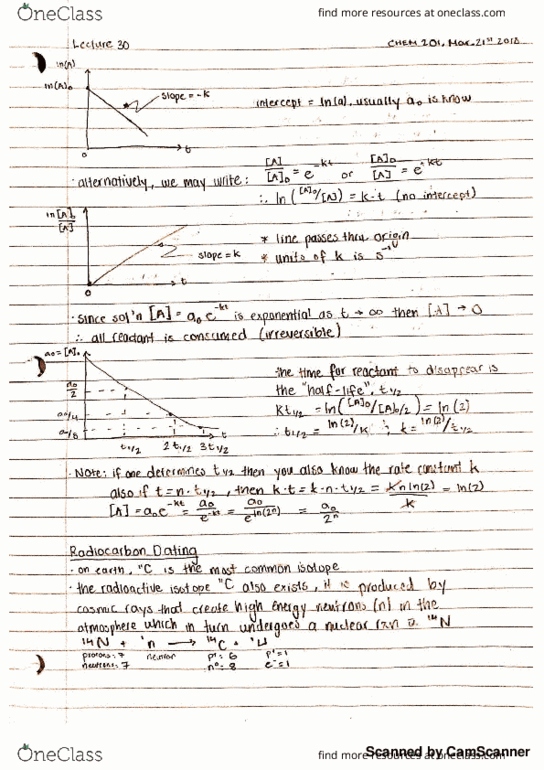 OneClass
find more resources at oneclass.com
Lecture 30
CHEM 201, Mar. 21st 2018
ln(A)
ln(A)₀
slope = -k
intercept = ln(a)₀ usually a₀ is know
0
t
· alternatively, we may write: [A]/[A]₀ = e^-kt or [A]₀/[A] = e^kt
∴ ln([A]₀/[A]) = k·t (no intercept)
ln [A]₀/[A]
* line passes thru origin
slope = k
* units of k is s⁻¹
0
t
· Since sol'n [A] = a₀e^-kt is exponential as t → ∞ then [A] → 0
∴ all reactant is consumed (irreversible)
a₀ = [A]₀
the time for reactant to disaprear is
a₀/2
the "half-life", t₁/₂
a₀/4
kt₁/₂ = ln([A]₀/[A]₀/2) = ln(2)
a₀/8
∴ t₁/₂ = ln(2)/k ; k = ln(2)/t₁/₂
t₁/₂ 2t₁/₂ 3t₁/₂
t
· Note: if one determines t₁/₂ then you also know the rate constant k
also if t = n·t₁/₂, then k·t = k·n·t₁/₂ = kn ln(2)/k = ln(2)
[A] = a₀e^-kt = a₀/e^-kt = a₀/e^ln(2ⁿ) = a₀/2ⁿ
Radiocarbon Dating
· on earth, C is the most common isotope
· the radioactive isotope C also exists, it is produced by
cosmic rays that create high energy neutrons (n) in the
atmosphere which in turn undergoes a nuclear rxn ¹⁴N
¹⁴N + ¹n → ¹⁴C + ¹H
protons: 7 neutron p⁺: 6 p⁺=1
neutrons: 7 n°: 8 e⁻=1
OneClass
find more resources at oneclass.com
Scanned by CamScanner